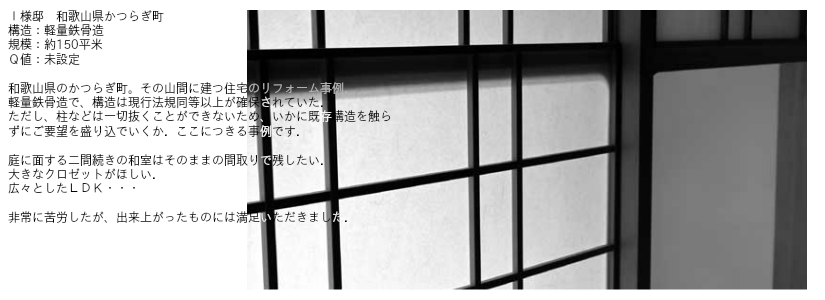 Ｉ様邸　和歌山県かつらぎ町
構造：軽量鉄骨造
規模：約150平米
Ｑ値：未設定
和歌山県のかつらぎ町。その山間に建つ住宅のリフォーム事例
軽量鉄骨造で、構造は現行法規同等以上が確保されていた．
ただし、柱などは一切抜くことができないため、いかに既存構造を触ら
ずにご要望を盛り込でいくか．ここにつきる事例です．
庭に面する二間続きの和室はそのままの間取りで残したい．
大きなクロゼットがほしい．
広々としたＬＤＫ・・・
非常に苦労したが、出来上がったものには満足いただきました．